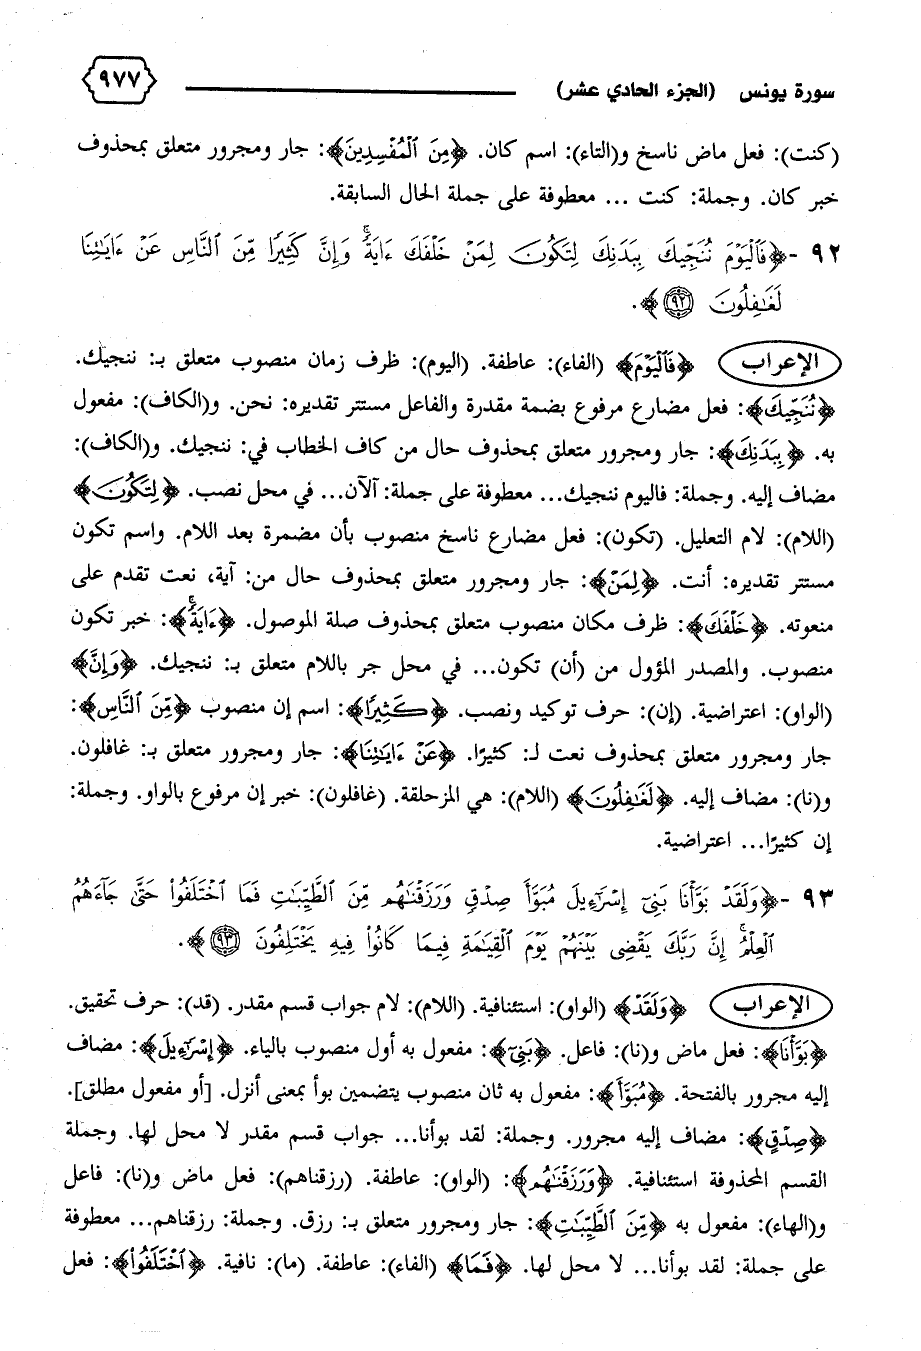 سورة يونس (الجزء الحادي عشر) ٩٧٧
(كنت): فعل ماض ناسخ و(التاء): اسم كان. ﴿مِنَ ٱلْمُفْسِدِينَ﴾: جار ومجرور متعلق بمحذوف
خبر كان. وجملة: كنت ... معطوفة على جملة الحال السابقة.
٩٢ - ﴿فَٱلْيَوْمَ نُنَجِّيكَ بِبَدَنِكَ لِتَكُونَ لِمَنْ خَلْفَكَ ءَايَةً ۚ وَإِنَّ كَثِيرًا مِّنَ ٱلنَّاسِ عَنْ ءَايَٰتِنَا
لَغَٰفِلُونَ ۝٩٢﴾.
الإعراب ﴿فَٱلْيَوْمَ﴾ (الفاء): عاطفة. (اليوم): ظرف زمان منصوب متعلق بـ: ننجيك.
﴿نُنَجِّيكَ﴾: فعل مضارع مرفوع بضمة مقدرة والفاعل مستتر تقديره: نحن. و(الكاف): مفعول
به. ﴿بِبَدَنِكَ﴾: جار ومجرور متعلق بمحذوف حال من كاف الخطاب في: ننجيك. و(الكاف):
مضاف إليه. وجملة: فاليوم ننجيك... معطوفة على جملة: آلآن... في محل نصب. ﴿لِتَكُونَ﴾
(اللام): لام التعليل. (تكون): فعل مضارع ناسخ منصوب بأن مضمرة بعد اللام. واسم تكون
مستتر تقديره: أنت. ﴿لِمَنْ﴾: جار ومجرور متعلق بمحذوف حال من: آية، نعت تقدم على
منعوته. ﴿خَلْفَكَ﴾: ظرف مكان منصوب متعلق بمحذوف صلة الموصول. ﴿ءَايَةً ۚ﴾: خبر تكون
منصوب. والمصدر المؤول من (أن) تكون... في محل جر باللام متعلق بـ: ننجيك. ﴿وَإِنَّ﴾
(الواو): اعتراضية. (إن): حرف توكيد ونصب. ﴿كَثِيرًا﴾: اسم إن منصوب ﴿مِّنَ ٱلنَّاسِ﴾:
جار ومجرور متعلق بمحذوف نعت لـ: كثيرًا. ﴿عَنْ ءَايَٰتِنَا﴾: جار ومجرور متعلق بـ: غافلون.
و(نا): مضاف إليه. ﴿لَغَٰفِلُونَ﴾ (اللام): هي المزحلقة. (غافلون): خبر إن مرفوع بالواو. وجملة:
إن كثيرًا... اعتراضية.
٩٣ - ﴿وَلَقَدْ بَوَّأْنَا بَنِىٓ إِسْرَٰٓءِيلَ مُبَوَّأَ صِدْقٍ وَرَزَقْنَٰهُم مِّنَ ٱلطَّيِّبَٰتِ فَمَا ٱخْتَلَفُوا۟ حَتَّىٰ جَآءَهُمُ
ٱلْعِلْمُ ۚ إِنَّ رَبَّكَ يَقْضِى بَيْنَهُمْ يَوْمَ ٱلْقِيَٰمَةِ فِيمَا كَانُوا۟ فِيهِ يَخْتَلِفُونَ ۝٩٣﴾.
الإعراب ﴿وَلَقَدْ﴾ (الواو): استئنافية. (اللام): لام جواب قسم مقدر. (قد): حرف تحقيق.
﴿بَوَّأْنَا﴾: فعل ماض و(نا): فاعل. ﴿بَنِىٓ﴾: مفعول به أول منصوب بالياء. ﴿إِسْرَٰٓءِيلَ﴾: مضاف
إليه مجرور بالفتحة. ﴿مُبَوَّأَ﴾: مفعول به ثان منصوب يتضمين بوأ بمعنى أنزل. [أو مفعول مطلق].
﴿صِدْقٍ﴾: مضاف إليه مجرور. وجملة: لقد بوأنا... جواب قسم مقدر لا محل لها. وجملة
القسم المحذوفة استئنافية. ﴿وَرَزَقْنَٰهُم﴾: (الواو): عاطفة. (رزقناهم): فعل ماض و(نا): فاعل
و(الهاء): مفعول به ﴿مِّنَ ٱلطَّيِّبَٰتِ﴾: جار ومجرور متعلق بـ: رزق. وجملة: رزقناهم... معطوفة
على جملة: لقد بوأنا... لا محل لها. ﴿فَمَا﴾ (الفاء): عاطفة. (ما): نافية. ﴿ٱخْتَلَفُوا۟﴾: فعل